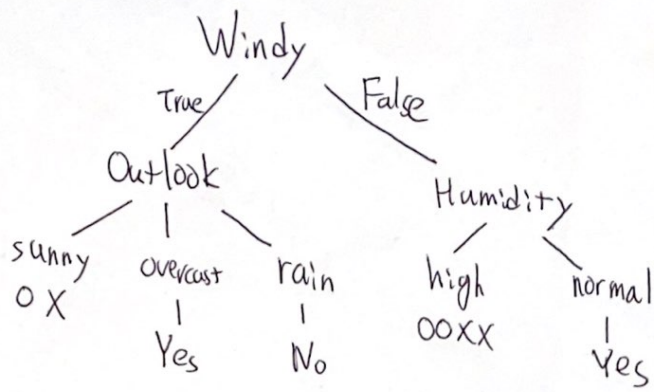 Windy
True False
Outlook Humidity
sunny overcast rain high normal
OX OOXX
Yes No Yes